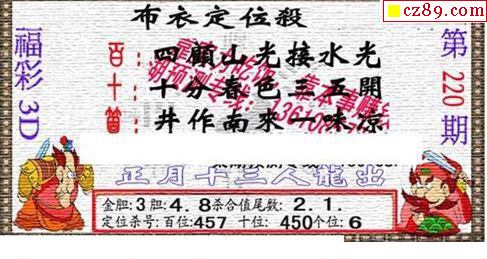 cz89.com
布衣定位殺
福彩3D
第220期
百 四顧山光接水光
十 十分春色三五開
箇 井作南來一味凉
正月十三人龍出
金胆:3胆:4.8杀合值尾数:2.1.
定位杀号:百位:457 十位:450个位:6